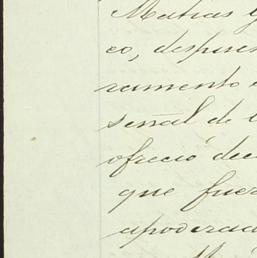 Matias y
co, despues
ramento
señal de
ofreció dec
que fuer
apoderad